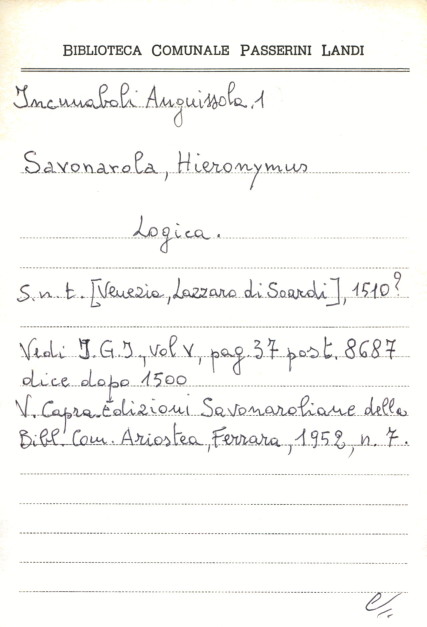 BIBLIOTECA COMUNALE PASSERINI LANDI
Incunaboli Anguissola, 1
Savonarola, Hieronymus
Logica.
S.n.t. [Venezia, Lazzaro di Soardi], 1510?
Vedi I.G.I., vol V, pag. 37 post. 8687
dice dopo 1500
V. Capra. Edizioni Savonaroliane della
Bibl. Com. Ariostea, Ferrara, 1952, n. 7.